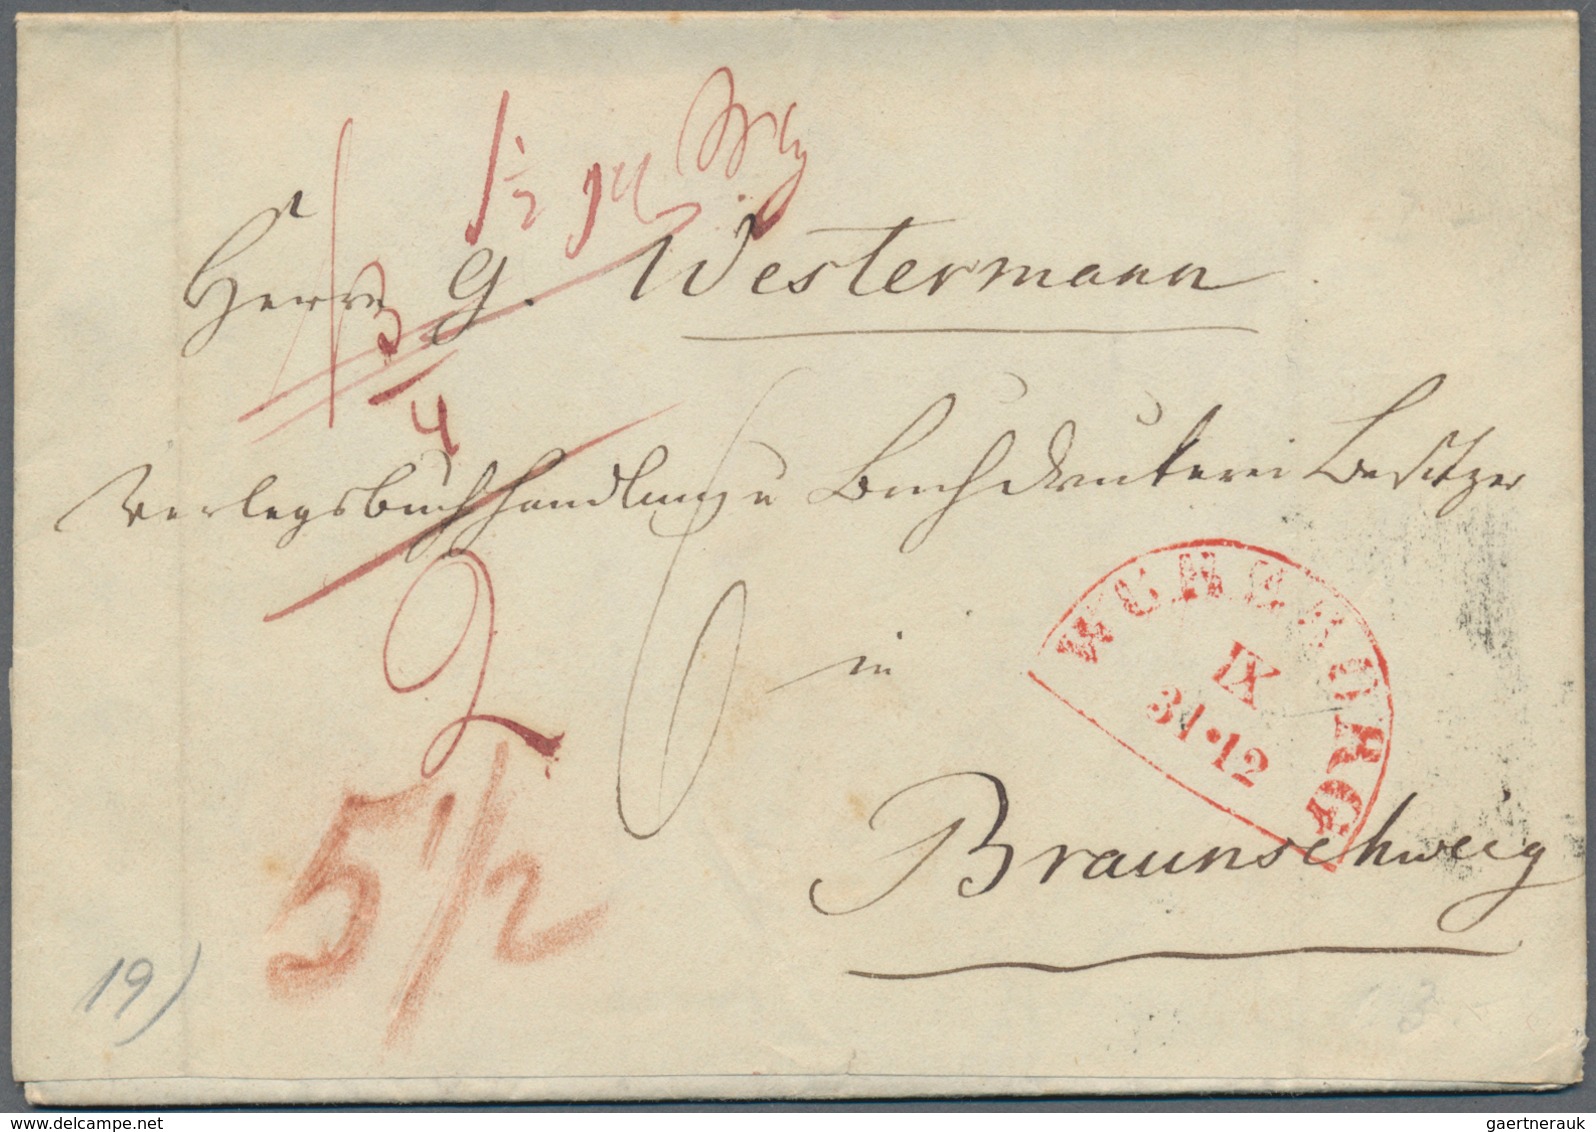 1 1/2
Herrn G. Westermann
3/4
Verlagsbuchhandlung u Buchdruckerei Besitzer
2
6
in
WÜRZBURG
IX
31·12
Braunschweig
5 1/2
19)
delcampe.net
gaertnerauk